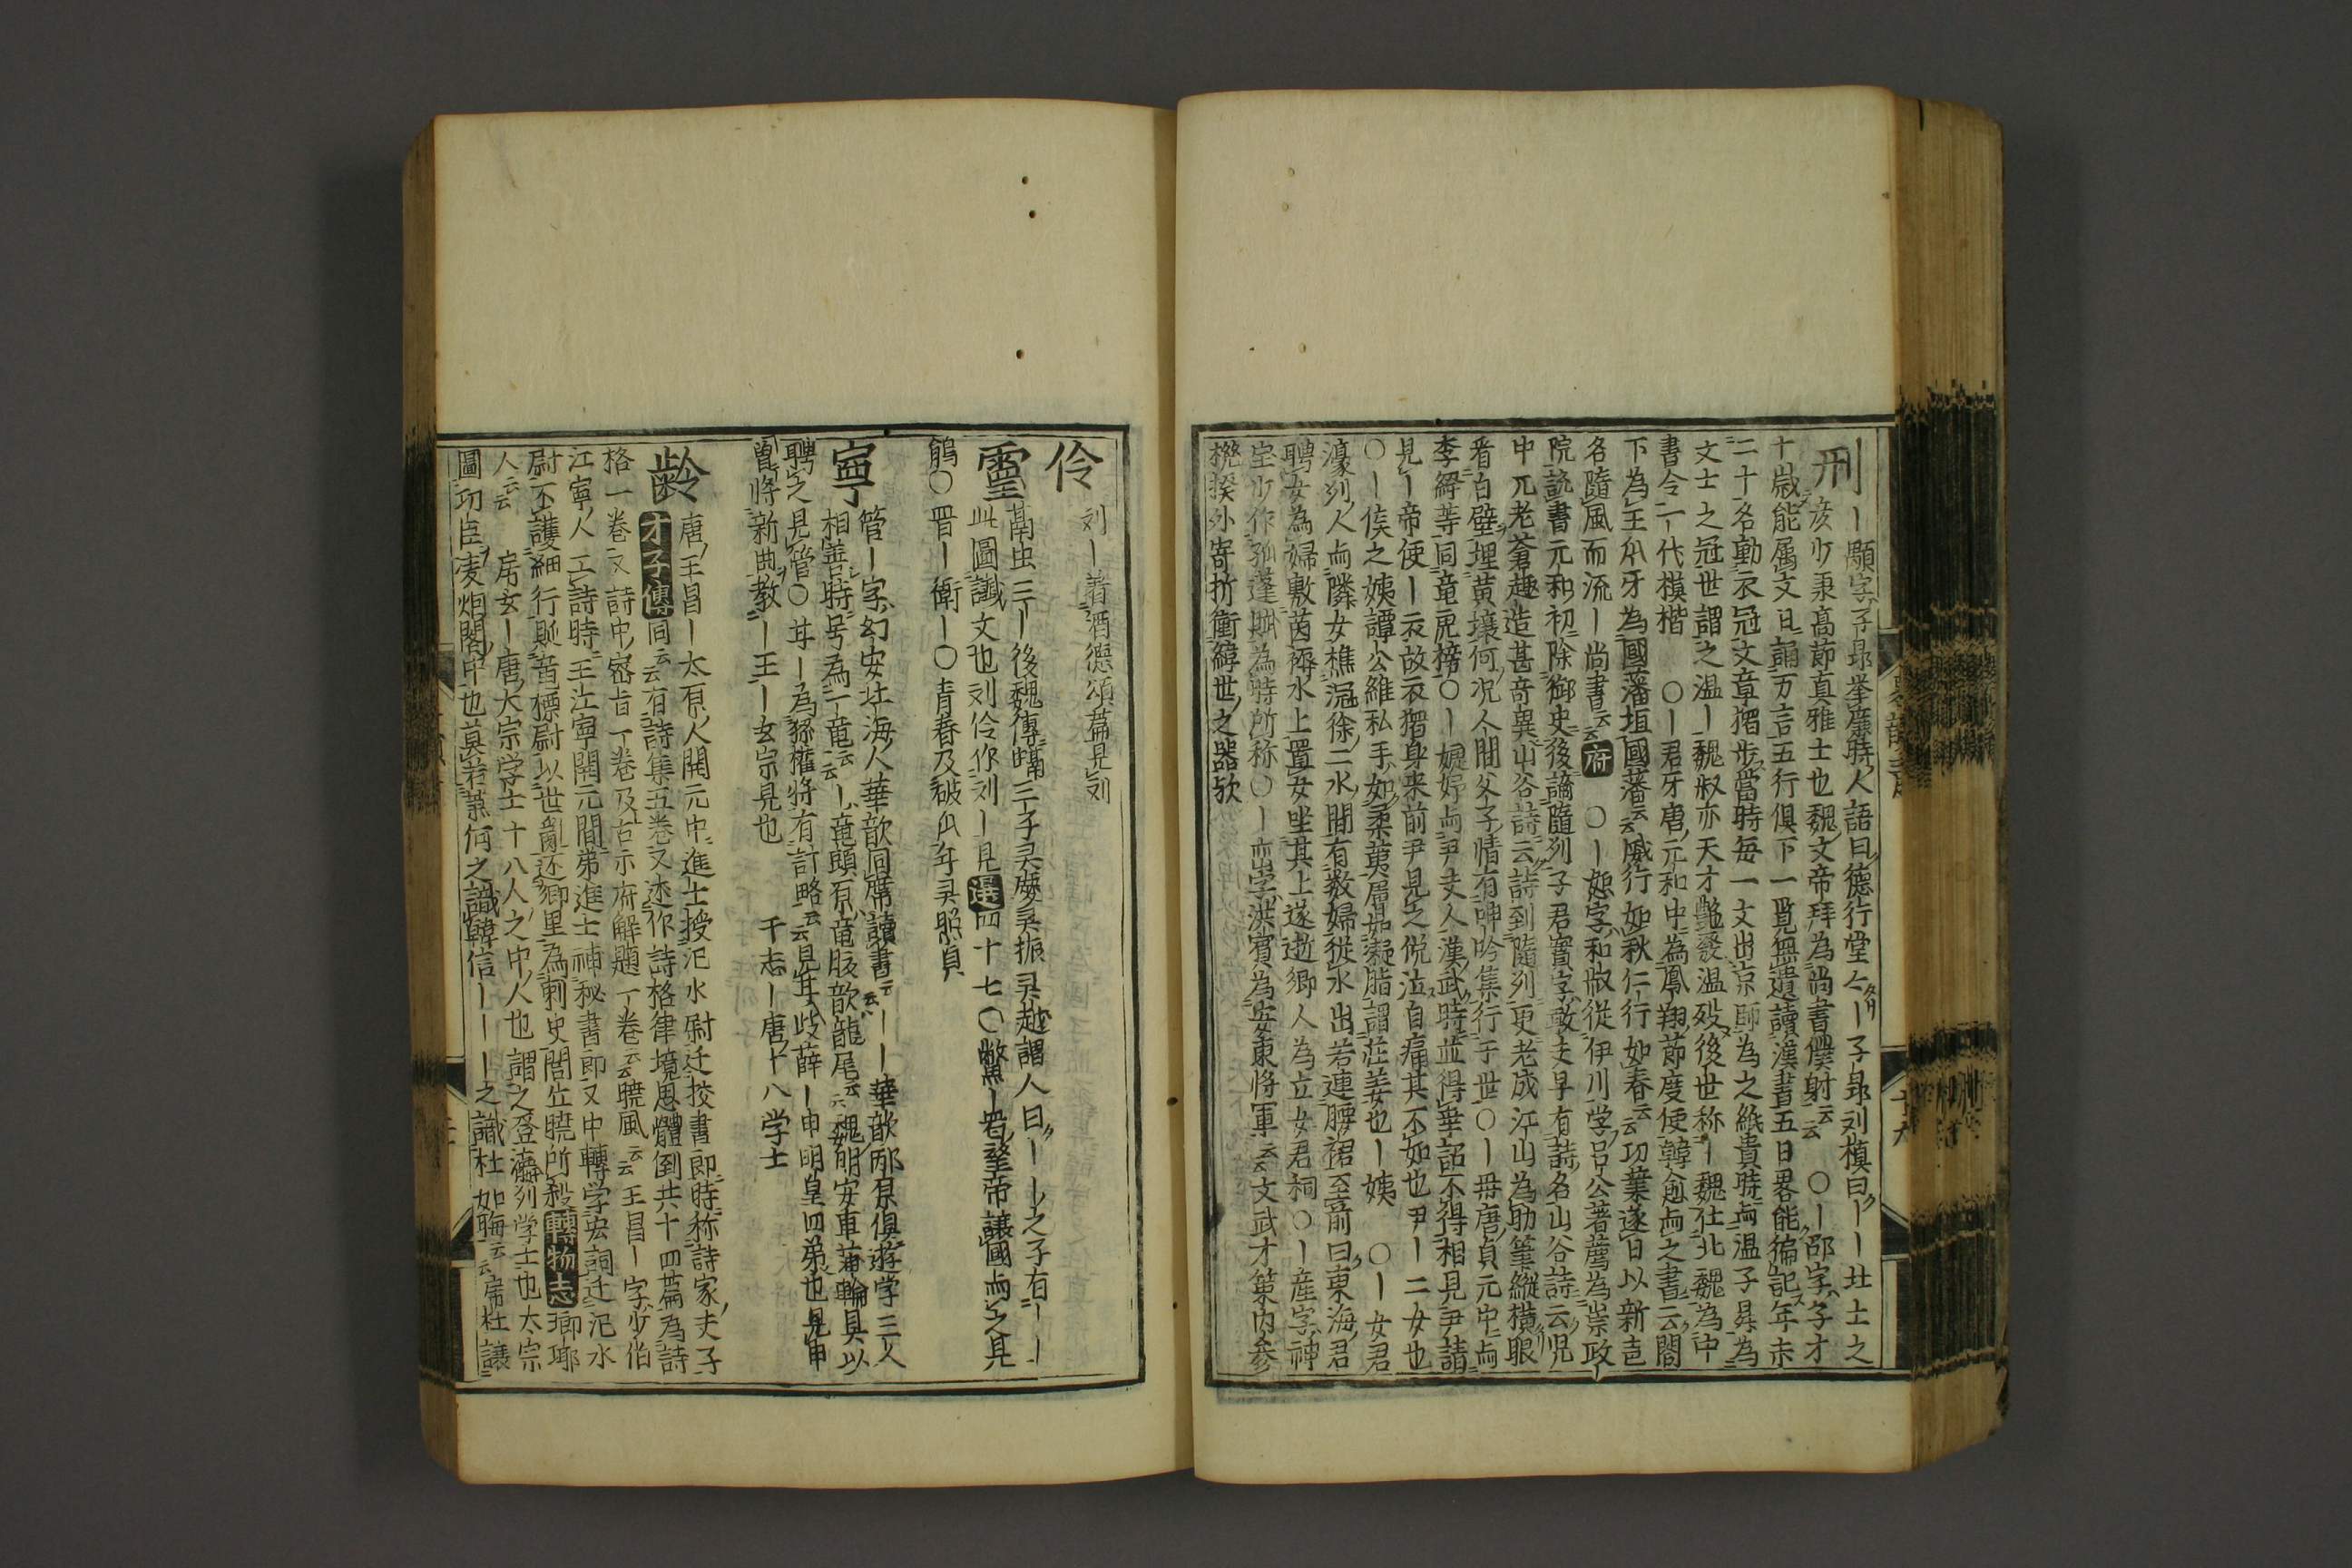 刑
｜顒字子昂挙廉時人語曰德行堂々｜子昂刘楨曰｜｜北土之
彦少秉髙節真雅士也魏文帝拜為尚書僕射云云　〇｜邵字子才
十歳能属文日誦万言五行俱下一覧無遺讀漢書五日畧能徧記年未
二十名動衣冠文章獨步當時每一文出京師為之紙貴時与温子昇為
文士之冠世謂之温｜魏収亦天才艶發温殁後世称｜魏仕北魏為中
書令一代模楷　〇｜君牙唐元和中為鳳翔節度使韓愈与之書云閤
下為王爪牙為國藩垣國藩云云威行如秋仁行如春云云功業遂日以新邑
名隨風而流｜尚書云云府　〇｜恕字和叔從伊川学吕公著薦為崇政
院説書元和初除御史後謫隨列子君實字敦夫早有詩名山谷詩云児
中兀老蒼趣造甚奇異山谷詩云詩到隨列更老成江山為助筆縱横眼
看白壁埋黄壤何况人間父子情有呻吟集行于世〇｜毋唐貞元中与
李絳等同竜虎榜〇｜娙娥与尹夫人漢武時並得幸詔不得相見尹請
見｜帝使｜衣故衣獨身来前尹見之俛泣自痛其不如也尹｜二女也
〇｜侯之姨譚公維私手如柔荑層如凝脂謂荘姜也｜姨　〇｜女君
濠列人与隣女樵淝徐二水間有数婦從水出若連腰裙至前曰東海君
聘女為婦敷茵褥水上置女坐其上遂逝郷人為立女君祠〇｜産字神
宝少作孤蓬賦為時所称〇｜峦字洪賓為安東将軍云云文武才策内参
機揆外寄折衝緯世之器欤
伶　刘｜著酒德頌篇見刘
靈　蒚虫三｜後魏傳蟎三子灵夔灵振灵越謂人曰｜｜之子有｜｜
此圖讖文也刘伶作刘｜見選四十七〇鱉｜者望帝讓國与之見
鵑〇晋｜衛｜〇青春乃破瓜年灵照貞
寧　管｜字幻安北海人華歆同席讀書云云｜｜華歆邴原俱遊学三人
相善時号為一竜云云｜竜頭原竜腹歆龍尾云云魏明安車蒲輪具以
聘之見管〇甘｜為孫權将有計略云云見甘岐薛｜申明皇四弟也見申
曽将新曲教｜王｜玄宗見也　　千志｜唐十八学士
齡　唐王昌｜太原人開元中進士授汜水尉迁挍書郎時称詩家夫子
才子傳同云云有詩集五卷又述作詩格律境思體倒共十四篇為詩
格一卷又詩中密旨一卷及古示府解題一卷云云曉風云云王昌｜字少伯
江寧人工詩時王江寧開元間弟進士補秘書郎又中轉学宏詞迁汜水
尉不護細行貶竜標尉以世亂还郷里為刺史閭丘曉所殺轉物志瑯琊
人云云　房玄｜唐大宗学士十八人之中人也謂之登瀛列学士也太宗
圖功臣凌烟閣中也莫若蕭何之識韓信｜｜｜之識杜如晦云云房杜議